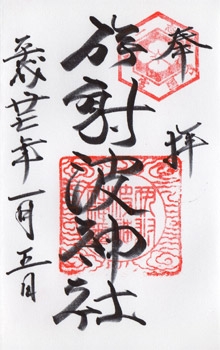 奉拝
伊射波神社
平成廿年一月五日